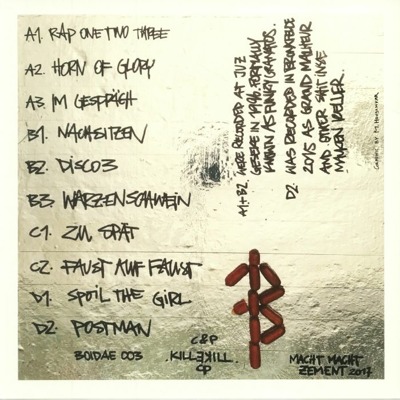 A1. RAP ONE TWO THREE
A2. HORN OF GLORY
A3. IM GESPRÄCH
B1. NACHSITZEN
B2. DISCO3
B3. WARZENSCHWEIN
C1. ZU SPÄT
C2. FAUST AUF FAUST
D1. SPOIL THE GIRL
D2. POSTMAN
BOIDAE 003
C&P
KILLEKILL
MACHT MACHT
ZEMENT 2017
A1+B2 WERE RECORDED AT JUZ
IN 1996. FORMALLY
KNOWN AS FUNKY
D2 WAS RECORDED IN
2015 AS GRAND MALHEUR
AND OTHER SHIT INSE
KELLER.